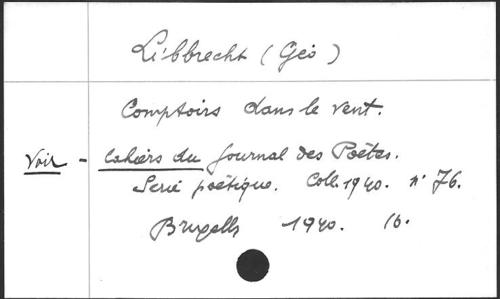 Libbrecht (Géo)
Comptoirs dans le vent.
Voir - Cahiers du Journal des Poètes.
Serie poétique. Coll. 1940. n° 76.
Bruxelles 1940. 16.